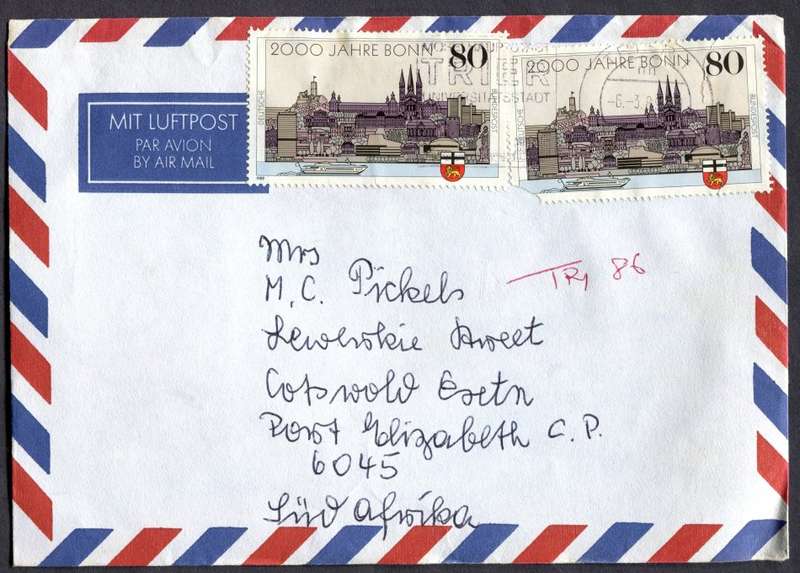 2000 JAHRE BONN 80
2000 JAHRE BONN 80
DEUTSCHE BUNDESPOST
DEUTSCHE BUNDESPOST
TRIER
UNIVERSITÄTSSTADT
-6.-3.
MIT LUFTPOST
PAR AVION
BY AIR MAIL
Mrs
M. C. Pickels
TRI 86
Street
Cotswold Extn
Port Elizabeth C. P.
6045
Süd Afrika